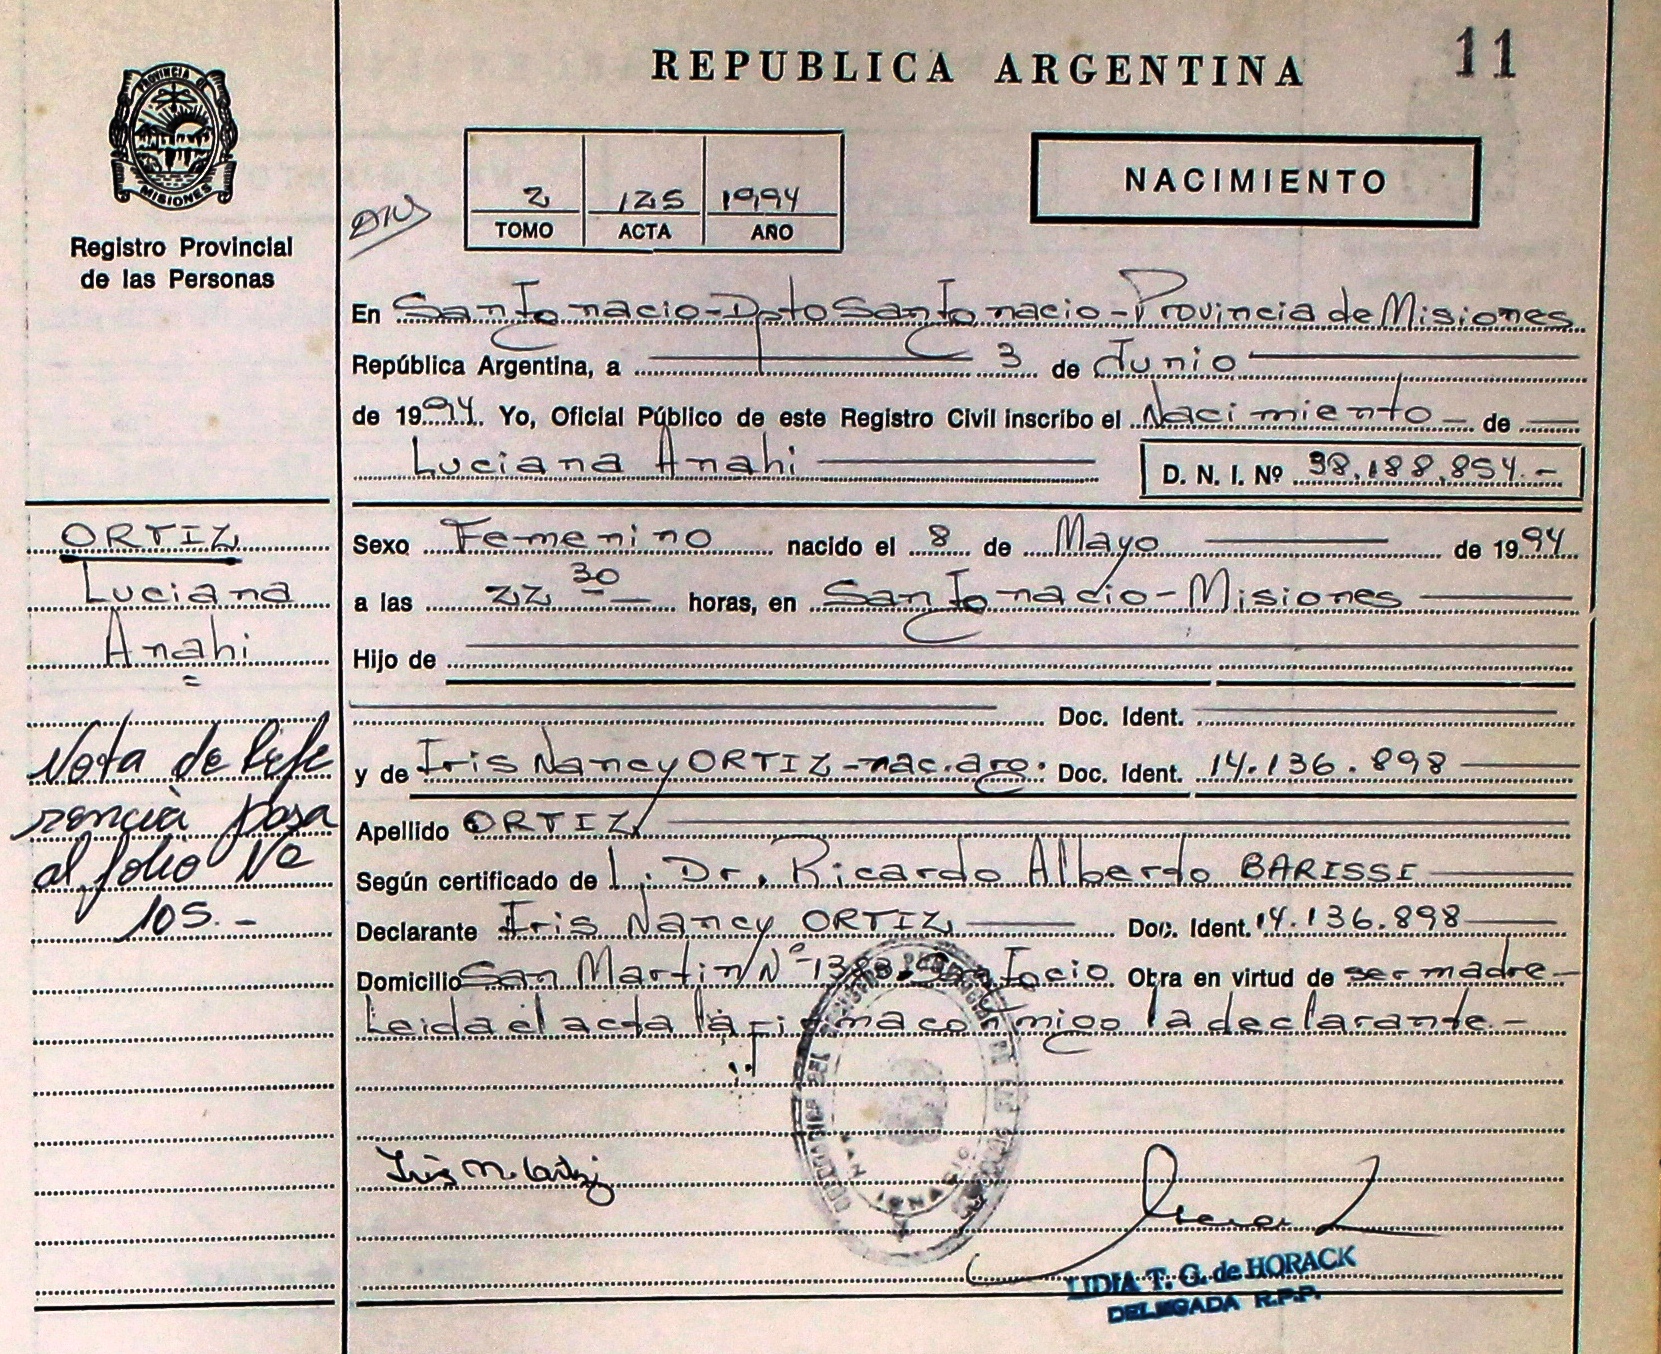 REPUBLICA ARGENTINA
11
PROVINCIA DE
MISIONES
Registro Provincial
de las Personas
2 125 1994
TOMO ACTA AÑO
NACIMIENTO
En San Ignacio-Dpto San Ignacio-Provincia de Misiones
República Argentina, a 3 de Junio
de 1994. Yo, Oficial Público de este Registro Civil inscribo el Nacimiento - de
Luciana Anahi
D. N. I. Nº 38.188.854.-
ORTIZ
Luciana
Anahi
Sexo Femenino nacido el 8 de Mayo de 1994
a las 22 30 horas, en San Ignacio-Misiones
Hijo de
Doc. Ident.
y de Iris Nancy ORTIZ-nac.arg. Doc. Ident. 14.136.898
Apellido ORTIZ
Según certificado de l. Dr. Ricardo Alberdo BARISSI
Declarante Iris Nancy ORTIZ Doc. Ident. 14.136.898
Domicilio San Martin Nº Obra en virtud de ser madre-
Leida el acta la firma conmigo la declarante.-
Nota de Refe
rencia pasa
al folio Nº
105.-
LIDIA T. G. de HORACK
DELEGADA R.P.P.